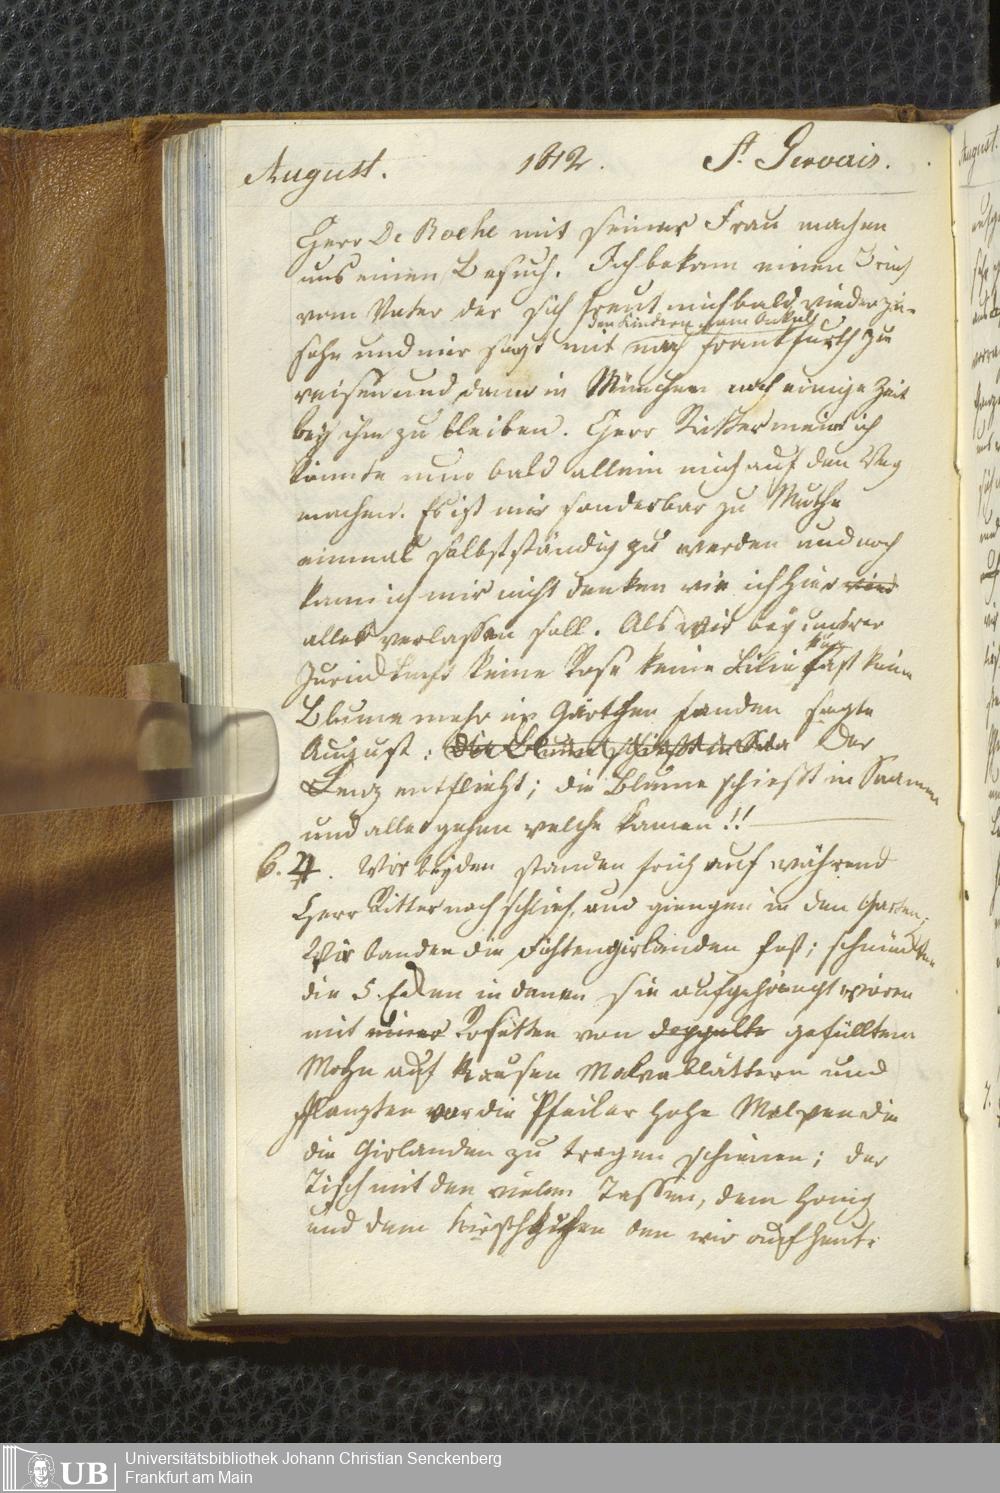 August. 1812. St. Gervais.
Herr De Roche mit seiner Frau machen
uns einen Besuch. Ich bekam einen Brief
vom Vater der sich freut mich bald wieder zu
den Kindern zum Onkel
sehn und mir sagt mit nach Frankfurth zu
reisen und dann in München noch einige Zeit
bey ihm zu bleiben. Herr Ritter meint ich
könnte nun bald allein mich auf den Weg
machen. Es ist mir sonderbar zu Muthe
einmal selbstständig zu werden und noch
kann ich mir nicht denken wie ich hier
alles verlassen soll. Als wir bey unsrer
Zurückkunft keine Rose keine Lilie fast keine
Blume mehr im Gärtchen fanden sagte
August: die Blume schiesst in Der
Lenz entflieht; die Blume schießt in Saamen
und alle gehen welche kamen!!
6. ♃. Wir beyden standen früh auf während
Herr Ritter noch schlief, und giengen in den Garten;
Wir banden die Fichtengirlanden fest; schmückten
die 5. Ecken in denen sie aufgehängt waren
mit einer Rosetten von doppelte gefüllten
Mohn auf krausen Malvablättern und
pflanzten vor die Pfeiler hohe Malven die
die Girlanden zu tragen schienen; der
Tisch mit den vielen Tassen, dem Honig
und dem Kirschkuchen den wir auf heute
Universitätsbibliothek Johann Christian Senckenberg
Frankfurt am Main
UB